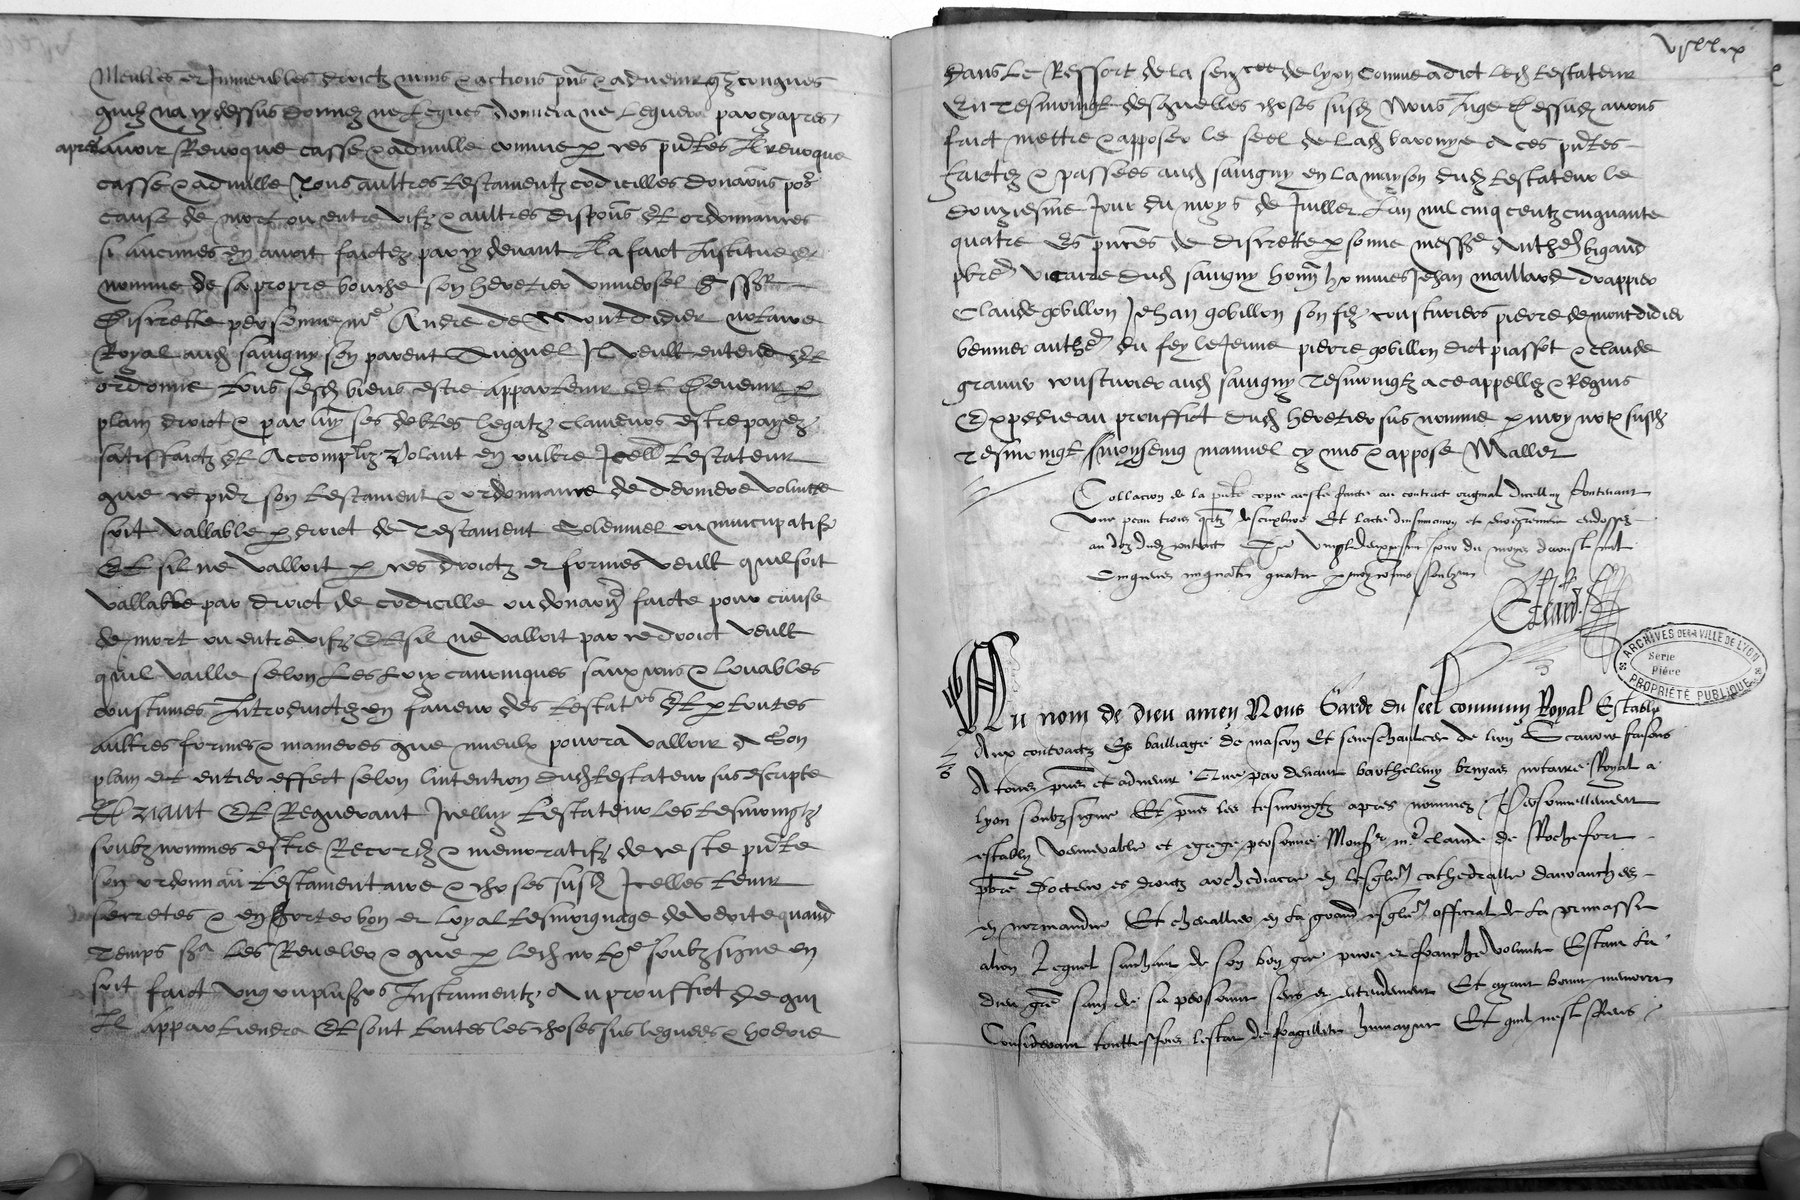 Meubles et Immeubles droictz noms & actions pnts & advenir qzconques
quil na cy dessus donnez ne legues donnera ne leguera par cy apres
apres avoir Revoque casse & adnulle comme p ces pntes Il revoque
casse & adnulle Tous aultres testamentz codicilles donaons por
cause de mort ou entre vifz & aultres dispons et ordonnances
si aucunes en avoit faictez par cy devant Il a faict Institue et
nomme de sa propre bouche son heretier universel
Discrette personne me Andre de Montdidier notaire
Royal aud savigny son parent Auquel Il veult entend et
ordonne tous sesd biens estre appartenir et devenir p
plain droict & par luy ses debtes legatz clameurs estre payez
satisfaictz et Accompliz Volant en oultre Icelld testateur
que ce pnt son testament & ordonnance de derniere volunte
soit vallable p droict de Testament Solennel ou nuncupatif
Et sil ne valloit p ces droictz et formes veult quil soit
vallable par droict de codicille ou donaon faicte pour cause
de mort ou entre vifz Et sil ne valloit par ce droict veult
quil vaille selon les loix canoniques sanxions & louables
coustumes Introductez en faveur des testatrs Et p toutes
aultres formes & manieres que mieulx pourra valloir A son
plain et entier effect selon lintention dud testateur susescripte
Priant Et Requerant Icelluy testateur les tesmoingtz
soubz nommes estre Recordz & memoratifz de ce ste pnte
son ordonnan testamentaire & choses susd Icelles tenir
secretes & en porter bon et loyal tesmoignage de verite quand
Temps sra les Reveler & que p led not soubzsigne en
soit faict ung ou plusrs Instrumentz Au prouffict de qui
Il appartiendra Et sont toutes les choses sus leguees & hoerie
dans Le Ressort de la sencee de lyon Comme a dict led testateur
En Tesmoingt desquelles choses susd Nous Juge dessusd avons
faict mettre & apposer le seel de Lad baronye A ces pntes
faictez & passees aud savigny en la mayson dud testateur le
Douziesme Jour du moys de Juillet Lan mil cinq centz cinquante
quatre Es pnces de discrette psonne messe Anthe bigaud
pbre vicaire dud savigny honn hommes Jehan maillard drappier
Claude gobillon Jehan gobillon son filz cousturiers pierre de montdidier
anthe du fey le Jeune pierre gobillon dict piasset & claude
cousturier aud savigny Tesmoingtz a ce appellez & Requis
Expediee au prouffict dud heretier sus nomme p moy notre susd
Tesmoingt mon seing manuel cy mis & appose Mallet
Collacion de la pnte copie a este faicte au contract original dicelluy Contenant
une peau trois descripture Et lacte dinsinuation et enregrement endossez
au doz dud contract Ce vingtdeuxiesme jour du moys daoust mil
Cinq cens cinquante quatre p moy commis
ARCHIVES DE LA VILLE DE LYON
Série
Pièce
PROPRIÉTÉ PUBLIQUE
Au nom de dieu amen Nous Garde du seel commun Royal Estably
Aux contractz Es bailliage de mascon Et seneschaulcee de lion Scavoir faisons
A tous pnts et advenir Que par devant barthelemy bruyas notaire Royal a
lyon soubzsigne Et pnts les tesmoingtz apres nommez Personnellement
estably venerable et egrege personne Monsr me claude de Rochefort
pbre Docteur es droictz archediacre en lesglise cathedralle davranches
en normandie Et chevallier en la grand esglise official de la primassie
dieu grace sain de sa personne sens et entendement Et ayant bonne memoire
Considerant touttesfois lestat de fragillite humayne Et quil nest Riens